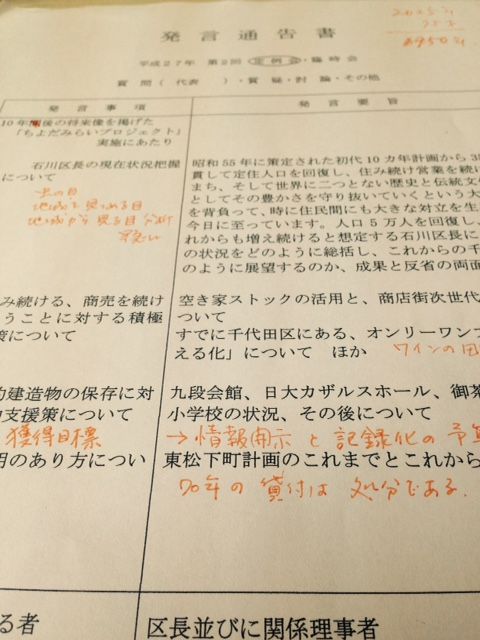 発言通告書
平成27年 第2回 定例会・臨時会
質問（代表 ）・質疑・討論・その他
発言事項
発言要旨
10年間後の将来像を掲げた
「ちよだみらいプロジェクト」
実施にあたり
石川区長の現在状況把握
について
虫の目
地域を見つめる目
地域から見る目
昭和55年に策定された初代10カ年計画から
貫して定住人口を回復し、住み続け営業を続
まち、そして世界に二つとない歴史と伝統文
としてその豊かさを守り抜いていくという大
を背負って、時に住民間にも大きな対立を生
今日に至っています。人口5万人を回復し、
れからも増え続けると想定する石川区長に
の状況をどのように総括し、これからの千
のように展望するのか、成果と反省の両面
み続ける、商売を続け
うことに対する積極
策について
空き家ストックの活用と、商店街次世代
ついて
すでに千代田区にある、オンリーワンプ
える化」について ほか
ワインの
的建造物の保存に対
支援策について
九段会館、日大カザルスホール、御茶
小学校の状況、その後について
獲得目標
→情報開示と記録化の予
用のあり方につい
東松下町計画のこれまでとこれから
70年の貸付は処分である。
る者
区長並びに関係理事者